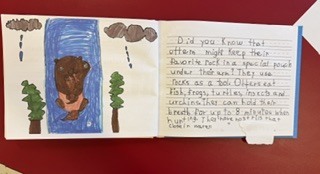 Did you know that
otters might keep their
favorite rock in a special pouch
under their arm! They use
rocks as a tool. Otters eat
fish, frogs, turtles, insects and
urchins that can hold their
breath for up to 8 minutes when
hunting.